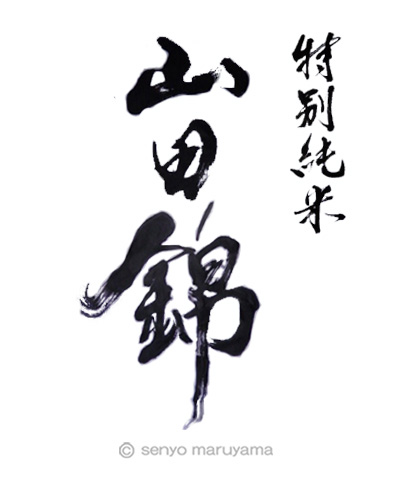 特別純米
山田錦
© senyo maruyama